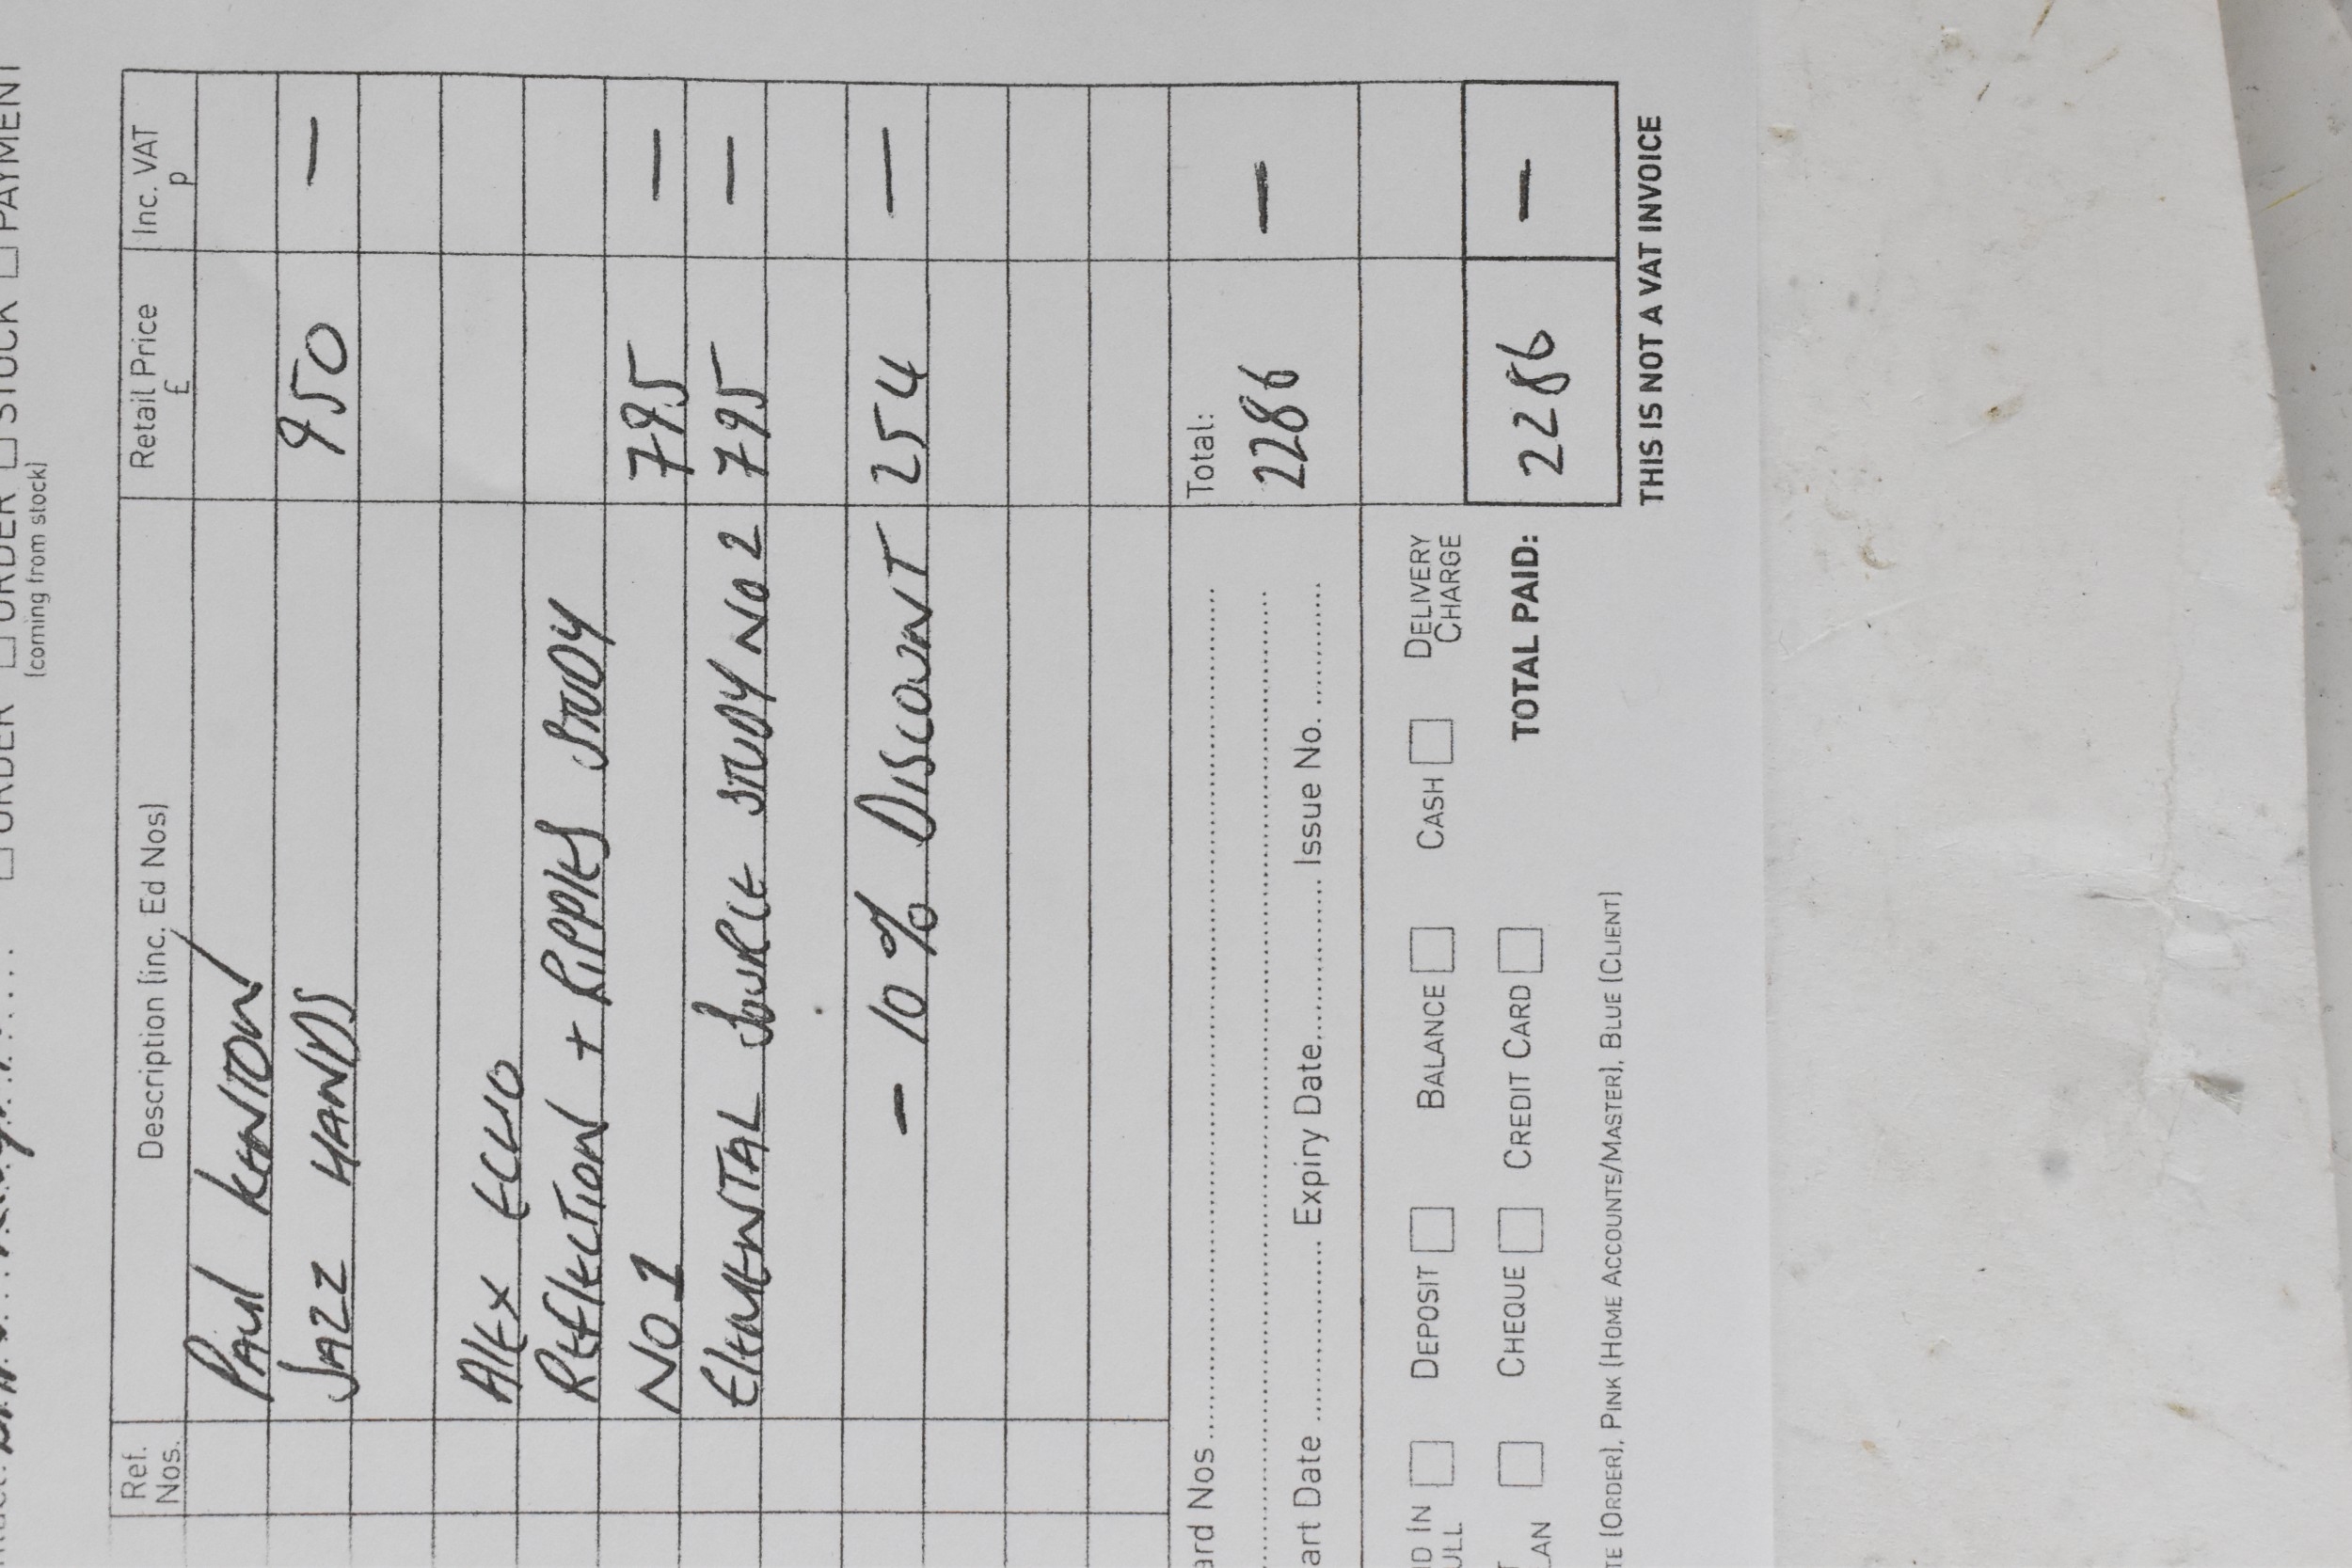 ORDER ☐ ORDER ☐ STOCK ☐ PAYMENT
(coming from stock)
Ref. Nos. Description (inc. Ed Nos) Retail Price £ Inc. VAT p
PAUL KENTON
JAZZ HANDS 950 —
ALEX ECHO
REFLECTION + RIPPLES STUDY
NO 1 795 —
ELEMENTAL SOURCE STUDY NO 2 795 —
- 10% DISCOUNT 254 —
Nos Total:
2286 —
Date Expiry Date Issue No.
IN ☐ DEPOSIT ☐ BALANCE ☐ CASH ☐ DELIVERY CHARGE
☐ CHEQUE ☐ CREDIT CARD ☐ TOTAL PAID: 2286 —
(ORDER), PINK (HOME ACCOUNTS/MASTER), BLUE (CLIENT) THIS IS NOT A VAT INVOICE